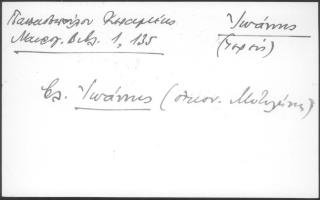 Παπαδοπούλου Κεραμέως
Μαυρογ. Βιβλ. 1, 135
Ἰωάννης
(Ἱερεύς)
Βλ. Ἰωάννης (οἰκον. Μυτιλήνης)